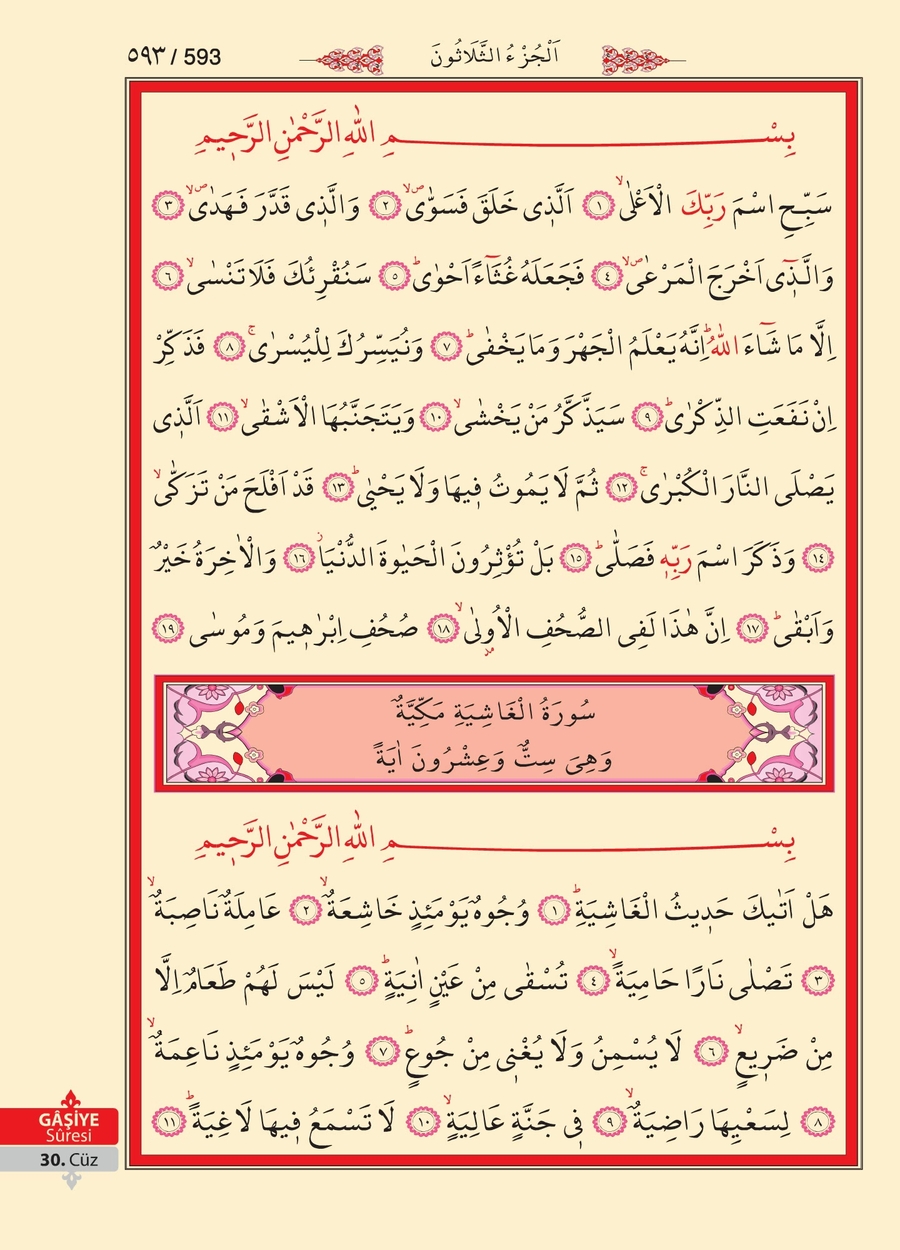 ٥٩٣ / 593
اَلْجُزْءُ الثَّلَاثُونَ
بِسْمِ اللّٰهِ الرَّحْمٰنِ الرَّحٖيمِ
سَبِّحِ اسْمَ رَبِّكَ الْاَعْلٰىۙ ﴿١﴾ اَلَّذٖى خَلَقَ فَسَوّٰىۙۖ ﴿٢﴾ وَالَّذٖى قَدَّرَ فَهَدٰىۙۖ ﴿٣﴾
وَالَّذٖٓى اَخْرَجَ الْمَرْعٰىۙۖ ﴿٤﴾ فَجَعَلَهُ غُثَٓاءً اَحْوٰىؕ ﴿٥﴾ سَنُقْرِئُكَ فَلَا تَنْسٰىۙ ﴿٦﴾
اِلَّا مَا شَٓاءَ اللّٰهُؕ اِنَّهُ يَعْلَمُ الْجَهْرَ وَمَا يَخْفٰىؕ ﴿٧﴾ وَنُيَسِّرُكَ لِلْيُسْرٰىۚ ﴿٨﴾ فَذَكِّرْ
اِنْ نَفَعَتِ الذِّكْرٰىؕ ﴿٩﴾ سَيَذَّكَّرُ مَنْ يَخْشٰىۙ ﴿١٠﴾ وَيَتَجَنَّبُهَا الْاَشْقٰىۙ ﴿١١﴾ اَلَّذٖى
يَصْلَى النَّارَ الْكُبْرٰىۚ ﴿١٢﴾ ثُمَّ لَا يَمُوتُ فٖيهَا وَلَا يَحْيٰىؕ ﴿١٣﴾ قَدْ اَفْلَحَ مَنْ تَزَكّٰىۙ
﴿١٤﴾ وَذَكَرَ اسْمَ رَبِّهٖ فَصَلّٰىؕ ﴿١٥﴾ بَلْ تُؤْثِرُونَ الْحَيٰوةَ الدُّنْيَاؗ ﴿١٦﴾ وَالْاٰخِرَةُ خَيْرٌ
وَاَبْقٰىؕ ﴿١٧﴾ اِنَّ هٰذَا لَفِى الصُّحُفِ الْاُولٰىۙ ﴿١٨﴾ صُحُفِ اِبْرٰهٖيمَ وَمُوسٰى ﴿١٩﴾
سُورَةُ الْغَاشِيَةِ مَكِّيَّةٌ
وَهِىَ سِتٌّ وَعِشْرُونَ اٰيَةً
بِسْمِ اللّٰهِ الرَّحْمٰنِ الرَّحٖيمِ
هَلْ اَتٰيكَ حَدٖيثُ الْغَاشِيَةِؕ ﴿١﴾ وُجُوهٌ يَوْمَئِذٍ خَاشِعَةٌۙ ﴿٢﴾ عَامِلَةٌ نَاصِبَةٌۙ
﴿٣﴾ تَصْلٰى نَارًا حَامِيَةًۙ ﴿٤﴾ تُسْقٰى مِنْ عَيْنٍ اٰنِيَةٍؕ ﴿٥﴾ لَيْسَ لَهُمْ طَعَامٌ اِلَّا
مِنْ ضَرٖيعٍۙ ﴿٦﴾ لَا يُسْمِنُ وَلَا يُغْنٖى مِنْ جُوعٍؕ ﴿٧﴾ وُجُوهٌ يَوْمَئِذٍ نَاعِمَةٌۙ
﴿٨﴾ لِسَعْيِهَا رَاضِيَةٌۙ ﴿٩﴾ فٖى جَنَّةٍ عَالِيَةٍۙ ﴿١٠﴾ لَا تَسْمَعُ فٖيهَا لَاغِيَةًؕ ﴿١١﴾
GÂŞİYE
Sûresi
30. Cüz